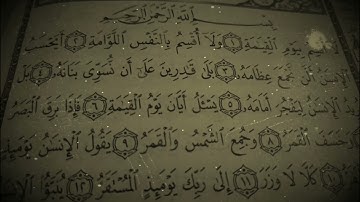 بِسْمِ ٱللَّهِ ٱلرَّحْمَٰنِ ٱلرَّحِيمِ
أُقْسِمُ بِيَوْمِ ٱلْقِيَٰمَةِ ١ وَلَآ أُقْسِمُ بِٱلنَّفْسِ ٱللَّوَّامَةِ ٢ أَيَحْسَبُ
ٱلْإِنسَٰنُ أَلَّن نَّجْمَعَ عِظَامَهُۥ ٣ بَلَىٰ قَٰدِرِينَ عَلَىٰٓ أَن نُّسَوِّىَ بَنَانَهُۥ ٤ بَلْ
يُرِيدُ ٱلْإِنسَٰنُ لِيَفْجُرَ أَمَامَهُۥ ٥ يَسْـَٔلُ أَيَّانَ يَوْمُ ٱلْقِيَٰمَةِ ٦ فَإِذَا بَرِقَ ٱلْبَصَرُ
وَخَسَفَ ٱلْقَمَرُ ٨ وَجُمِعَ ٱلشَّمْسُ وَٱلْقَمَرُ ٩ يَقُولُ ٱلْإِنسَٰنُ يَوْمَئِذٍ
كَلَّا لَا وَزَرَ ١١ إِلَىٰ رَبِّكَ يَوْمَئِذٍ ٱلْمُسْتَقَرُّ ١٢ يُنَبَّؤُا۟ ٱلْإِنسَٰنُ